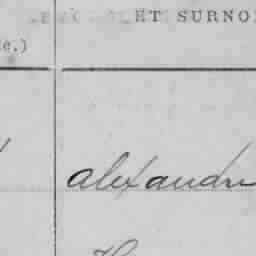 ET SURNO
e.)
alexandre